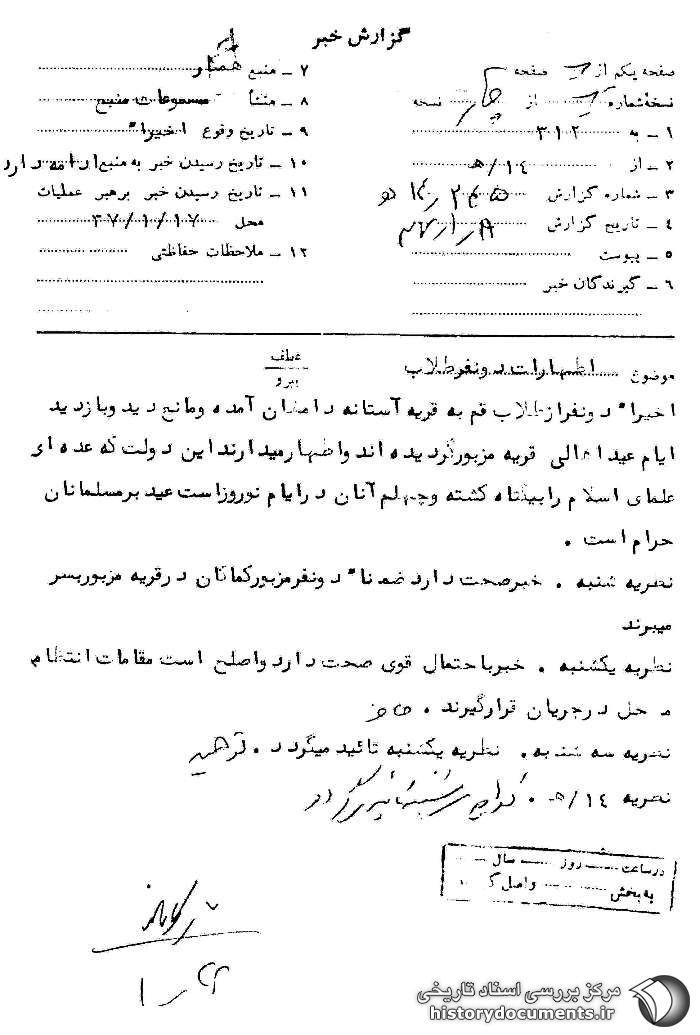 گزارش خبر
صفحه یکم از صفحه
نسخه شماره از چهار نسخه
۱ - به ۳۱۲
۲ - از ۱۴/ه
۳ - شماره گزارش ۲۶۵ر۱۴ ه
۴ - تاریخ گزارش
۵ - پیوست
۶ - گیرندگان خبر
۷ - منبع همکار
۸ - منشأ مسموعات منبع
۹ - تاریخ وقوع اخیرا"
۱۰ - تاریخ رسیدن خبر به منبع ادامه دارد
۱۱ - تاریخ رسیدن خبر برهبر عملیات
محل ۴۷/۱/۱۷
۱۲ - ملاحظات حفاظتی
موضوع اظهارات دونفرطلاب
عطف
پیرو
اخیرا" دونفرازطلاب قم به قریه آستانه دامغان آمده ومانع دیدوبازدید
ایام عیداهالی قریه مزبورگردیده اند واظهارمیدارند این دولت که عده ای
علمای اسلام رابیگناه کشته وچهلم آنان درایام نوروزاست عید برمسلمانان
حرام است .
نظریه شنبه . خبرصحت دارد ضمنا" دونفرمزبورکماکان درقریه مزبوربسر
میبرند
نظریه یکشنبه . خبرباحتمال قوی صحت دارد واصلح است مقامات انتظام
محل درجریان قرارگیرند .
نظریه سه شنبه . نظریه یکشنبه تائید میگردد .
نظریه ۱۴/ه .
درساعت روز سال
به بخش واصل
مرکز بررسی اسناد تاریخی
historydocuments.ir